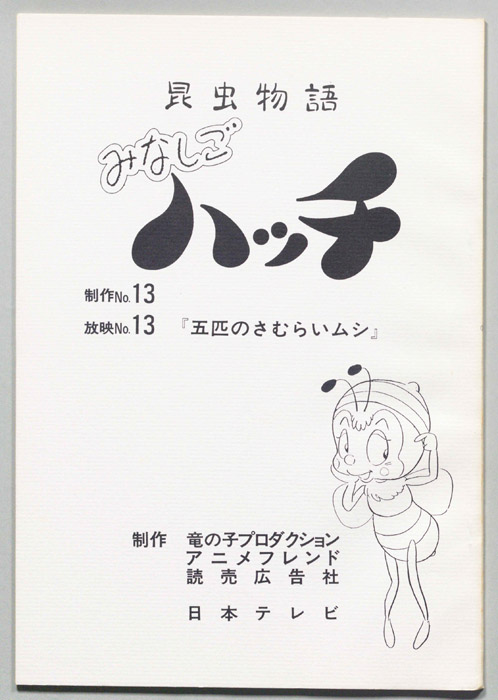 昆虫物語
みなしご
ハッチ
制作No.13
放映No.13 『五匹のさむらいムシ』
制作 竜の子プロダクション
アニメフレンド
読売広告社
日本テレビ